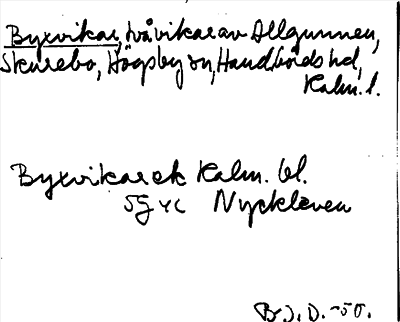 Byxvikar, två vikar av Allgunnen,
Skurebo, Högsby sn, Handbörds hd,
Kalm. l.
Byxvikar ek Kalm. bl.
5G 4c Nyckleven
Br J. D. -50.